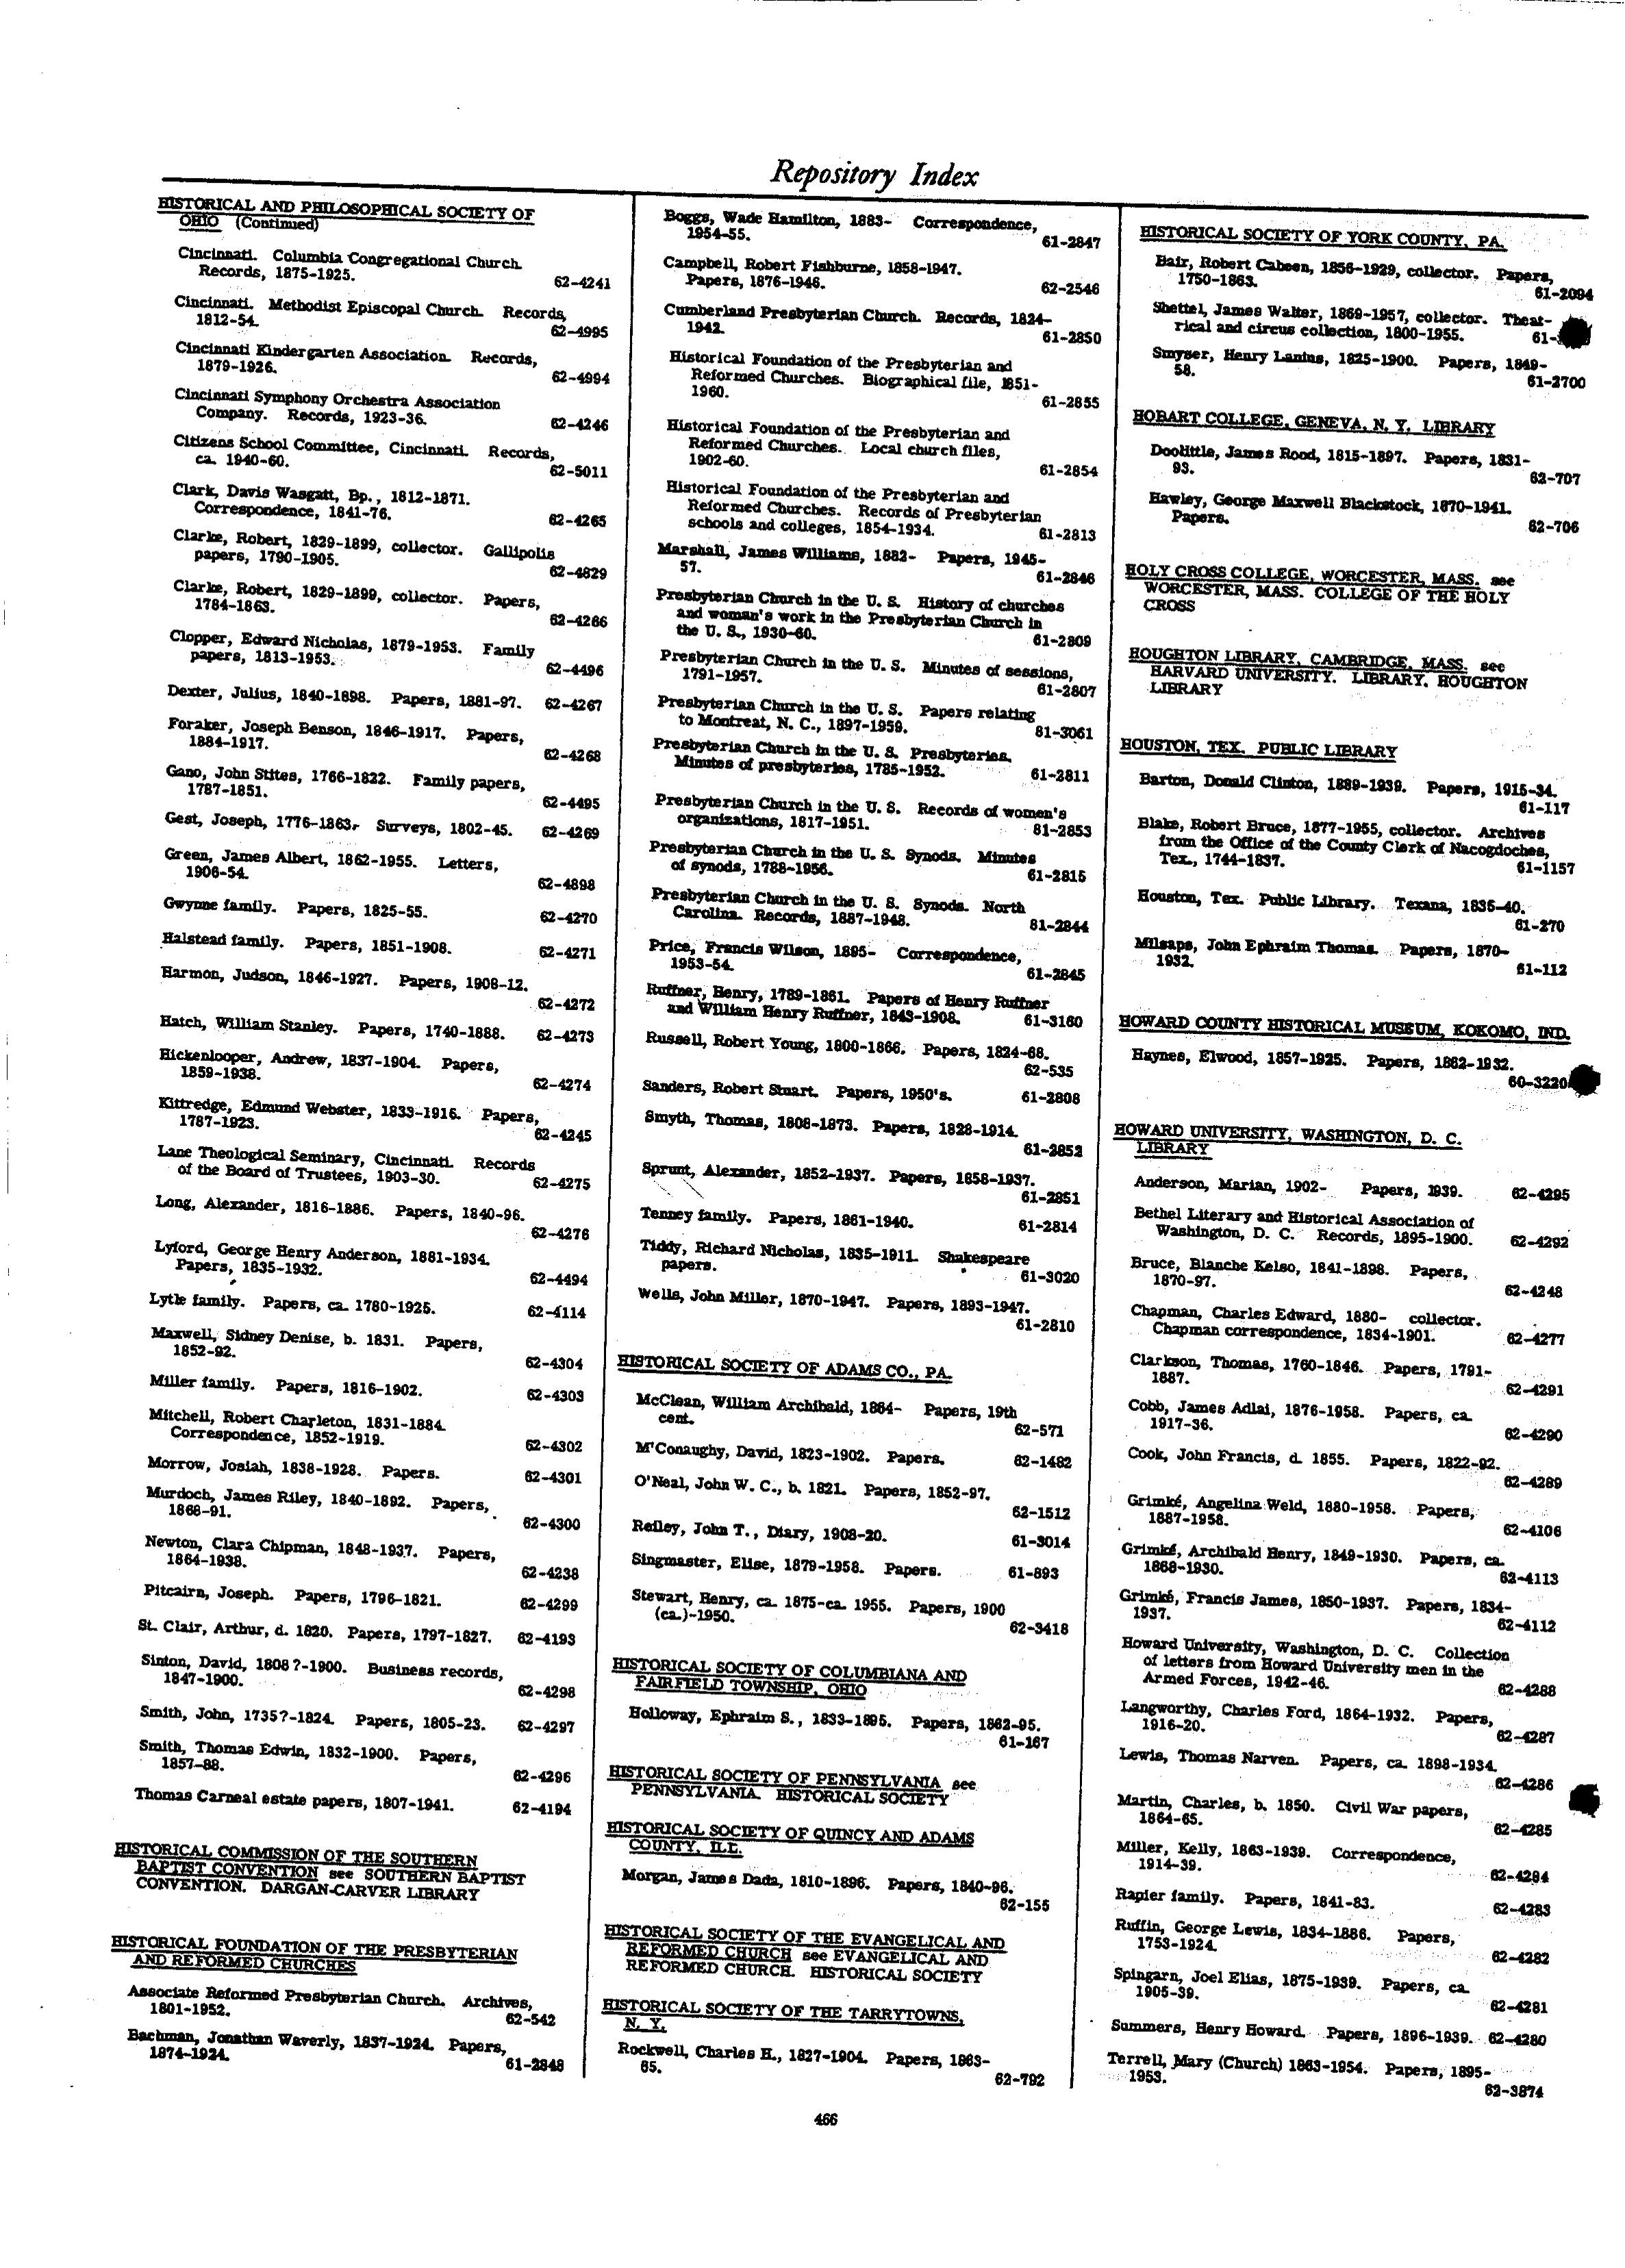 Repository Index
HISTORICAL AND PHILOSOPHICAL SOCIETY OF
OHIO (Continued)
Cincinnati. Columbia Congregational Church.
Records, 1875-1925. 62-4241
Cincinnati. Methodist Episcopal Church. Records,
1812-54. 62-4995
Cincinnati Kindergarten Association. Records,
1879-1926. 62-4994
Cincinnati Symphony Orchestra Association
Company. Records, 1923-36. 62-4246
Citizens School Committee, Cincinnati. Records,
ca. 1940-60. 62-5011
Clark, Davis Wasgatt, Bp., 1812-1871.
Correspondence, 1841-76. 62-4265
Clarke, Robert, 1829-1899, collector. Gallipolis
papers, 1790-1905. 62-4829
Clarke, Robert, 1829-1899, collector. Papers,
1784-1863. 62-4266
Clopper, Edward Nicholas, 1879-1953. Family
papers, 1813-1953. 62-4496
Dexter, Julius, 1840-1898. Papers, 1881-97. 62-4267
Foraker, Joseph Benson, 1846-1917. Papers,
1884-1917. 62-4268
Gano, John Stites, 1766-1822. Family papers,
1787-1851. 62-4495
Gest, Joseph, 1776-1863. Surveys, 1802-45. 62-4269
Green, James Albert, 1862-1955. Letters,
1906-54. 62-4898
Gwynne family. Papers, 1825-55. 62-4270
Halstead family. Papers, 1851-1908. 62-4271
Harmon, Judson, 1846-1927. Papers, 1908-12.
62-4272
Hatch, William Stanley. Papers, 1740-1888. 62-4273
Hickenlooper, Andrew, 1837-1904. Papers,
1859-1938. 62-4274
Kittredge, Edmund Webster, 1833-1916. Papers,
1787-1923. 62-4245
Lane Theological Seminary, Cincinnati. Records
of the Board of Trustees, 1903-30. 62-4275
Long, Alexander, 1816-1886. Papers, 1840-96.
62-4276
Lyford, George Henry Anderson, 1881-1934.
Papers, 1835-1932. 62-4494
Lytle family. Papers, ca. 1780-1925. 62-4114
Maxwell, Sidney Denise, b. 1831. Papers,
1852-92. 62-4304
Miller family. Papers, 1816-1902. 62-4303
Mitchell, Robert Charleton, 1831-1884.
Correspondence, 1852-1919. 62-4302
Morrow, Josiah, 1838-1928. Papers. 62-4301
Murdoch, James Riley, 1840-1892. Papers,
1868-91. 62-4300
Newton, Clara Chipman, 1848-1937. Papers,
1864-1938. 62-4238
Pitcairn, Joseph. Papers, 1796-1821. 62-4299
St. Clair, Arthur, d. 1820. Papers, 1797-1827. 62-4193
Sinton, David, 1808?-1900. Business records,
1847-1900. 62-4298
Smith, John, 1735?-1824. Papers, 1805-23. 62-4297
Smith, Thomas Edwin, 1832-1900. Papers,
1857-88. 62-4296
Thomas Carneal estate papers, 1807-1941. 62-4194
HISTORICAL COMMISSION OF THE SOUTHERN
BAPTIST CONVENTION see SOUTHERN BAPTIST
CONVENTION. DARGAN-CARVER LIBRARY
HISTORICAL FOUNDATION OF THE PRESBYTERIAN
AND REFORMED CHURCHES
Associate Reformed Presbyterian Church. Archives,
1801-1952. 62-542
Bachman, Jonathan Waverly, 1837-1924. Papers,
1874-1924. 61-2848
Boggs, Wade Hamilton, 1883- Correspondence,
1954-55. 61-2847
Campbell, Robert Fishburne, 1858-1947.
Papers, 1876-1946. 62-2546
Cumberland Presbyterian Church. Records, 1824-
1942. 61-2850
Historical Foundation of the Presbyterian and
Reformed Churches. Biographical file, 1851-
1960. 61-2855
Historical Foundation of the Presbyterian and
Reformed Churches. Local church files,
1902-60. 61-2854
Historical Foundation of the Presbyterian and
Reformed Churches. Records of Presbyterian
schools and colleges, 1854-1934. 61-2813
Marshall, James Williams, 1882- Papers, 1945-
57. 61-2846
Presbyterian Church in the U. S. History of churches
and woman's work in the Presbyterian Church in
the U. S., 1930-60. 61-2809
Presbyterian Church in the U. S. Minutes of sessions,
1791-1957. 61-2807
Presbyterian Church in the U. S. Papers relating
to Montreat, N. C., 1897-1959. 61-3061
Presbyterian Church in the U. S. Presbyteries.
Minutes of presbyteries, 1785-1952. 61-2811
Presbyterian Church in the U. S. Records of women's
organizations, 1817-1951. 61-2853
Presbyterian Church in the U. S. Synods. Minutes
of synods, 1788-1956. 61-2815
Presbyterian Church in the U. S. Synods. North
Carolina. Records, 1887-1948. 61-2844
Price, Francis Wilson, 1895- Correspondence,
1953-54. 61-2845
Ruffner, Henry, 1789-1861. Papers of Henry Ruffner
and William Henry Ruffner, 1843-1908. 61-3160
Russell, Robert Young, 1800-1866. Papers, 1824-68.
62-535
Sanders, Robert Stuart. Papers, 1950's. 61-2808
Smyth, Thomas, 1808-1873. Papers, 1828-1914.
61-2852
Sprunt, Alexander, 1852-1937. Papers, 1858-1937.
61-2851
Tenney family. Papers, 1861-1940. 61-2814
Tiddy, Richard Nicholas, 1835-1911. Shakespeare
papers. 61-3020
Wells, John Miller, 1870-1947. Papers, 1893-1947.
61-2810
HISTORICAL SOCIETY OF ADAMS CO., PA.
McClean, William Archibald, 1864- Papers, 19th
cent. 62-571
M'Conaughy, David, 1823-1902. Papers. 62-1482
O'Neal, John W. C., b. 1821. Papers, 1852-97.
62-1512
Reiley, John T., Diary, 1908-20. 61-3014
Singmaster, Elise, 1879-1958. Papers. 61-893
Stewart, Henry, ca. 1875-ca. 1955. Papers, 1900
(ca.)-1950. 62-3418
HISTORICAL SOCIETY OF COLUMBIANA AND
FAIRFIELD TOWNSHIP, OHIO
Holloway, Ephraim S., 1833-1895. Papers, 1862-95.
61-167
HISTORICAL SOCIETY OF PENNSYLVANIA see
PENNSYLVANIA. HISTORICAL SOCIETY
HISTORICAL SOCIETY OF QUINCY AND ADAMS
COUNTY, ILL.
Morgan, James Dada, 1810-1896. Papers, 1840-96.
62-155
HISTORICAL SOCIETY OF THE EVANGELICAL AND
REFORMED CHURCH see EVANGELICAL AND
REFORMED CHURCH. HISTORICAL SOCIETY
HISTORICAL SOCIETY OF THE TARRYTOWNS,
N. Y.
Rockwell, Charles H., 1827-1904. Papers, 1863-
65. 62-792
HISTORICAL SOCIETY OF YORK COUNTY, PA.
Bair, Robert Cabeen, 1856-1929, collector. Papers,
1750-1863. 61-2094
Shettel, James Walter, 1869-1957, collector. Theat-
rical and circus collection, 1800-1955. 61-
Smyser, Henry Lanius, 1825-1900. Papers, 1849-
58. 61-2700
HOBART COLLEGE, GENEVA, N. Y. LIBRARY
Doolittle, James Rood, 1815-1897. Papers, 1831-
93. 62-707
Hawley, George Maxwell Blackstock, 1870-1941.
Papers. 62-706
HOLY CROSS COLLEGE, WORCESTER, MASS. see
WORCESTER, MASS. COLLEGE OF THE HOLY
CROSS
HOUGHTON LIBRARY, CAMBRIDGE, MASS. see
HARVARD UNIVERSITY. LIBRARY. HOUGHTON
LIBRARY
HOUSTON, TEX. PUBLIC LIBRARY
Barton, Donald Clinton, 1889-1939. Papers, 1915-34.
61-117
Blake, Robert Bruce, 1877-1955, collector. Archives
from the Office of the County Clerk of Nacogdoches,
Tex., 1744-1837. 61-1157
Houston, Tex. Public Library. Texana, 1835-40.
61-270
Milsaps, John Ephraim Thomas. Papers, 1870-
1932. 61-112
HOWARD COUNTY HISTORICAL MUSEUM, KOKOMO, IND.
Haynes, Elwood, 1857-1925. Papers, 1862-1932.
60-3220
HOWARD UNIVERSITY, WASHINGTON, D. C.
LIBRARY
Anderson, Marian, 1902- Papers, 1939. 62-4295
Bethel Literary and Historical Association of
Washington, D. C. Records, 1895-1900. 62-4292
Bruce, Blanche Kelso, 1841-1898. Papers,
1870-97. 62-4248
Chapman, Charles Edward, 1880- collector.
Chapman correspondence, 1834-1901. 62-4277
Clarkson, Thomas, 1760-1846. Papers, 1791-
1887. 62-4291
Cobb, James Adlai, 1876-1958. Papers, ca.
1917-36. 62-4290
Cook, John Francis, d. 1855. Papers, 1822-92.
62-4289
Grimké, Angelina Weld, 1880-1958. Papers,
1887-1958. 62-4106
Grimké, Archibald Henry, 1849-1930. Papers, ca.
1868-1930. 62-4113
Grimké, Francis James, 1850-1937. Papers, 1834-
1937. 62-4112
Howard University, Washington, D. C. Collection
of letters from Howard University men in the
Armed Forces, 1942-46. 62-4288
Langworthy, Charles Ford, 1864-1932. Papers,
1916-20. 62-4287
Lewis, Thomas Narven. Papers, ca. 1898-1934.
62-4286
Martin, Charles, b. 1850. Civil War papers,
1864-65. 62-4285
Miller, Kelly, 1863-1939. Correspondence,
1914-39. 62-4284
Rapier family. Papers, 1841-83. 62-4283
Ruffin, George Lewis, 1834-1886. Papers,
1753-1924. 62-4282
Spingarn, Joel Elias, 1875-1939. Papers, ca.
1905-39. 62-4281
Summers, Henry Howard. Papers, 1896-1939. 62-4280
Terrell, Mary (Church) 1863-1954. Papers, 1895-
1953. 62-3874
466